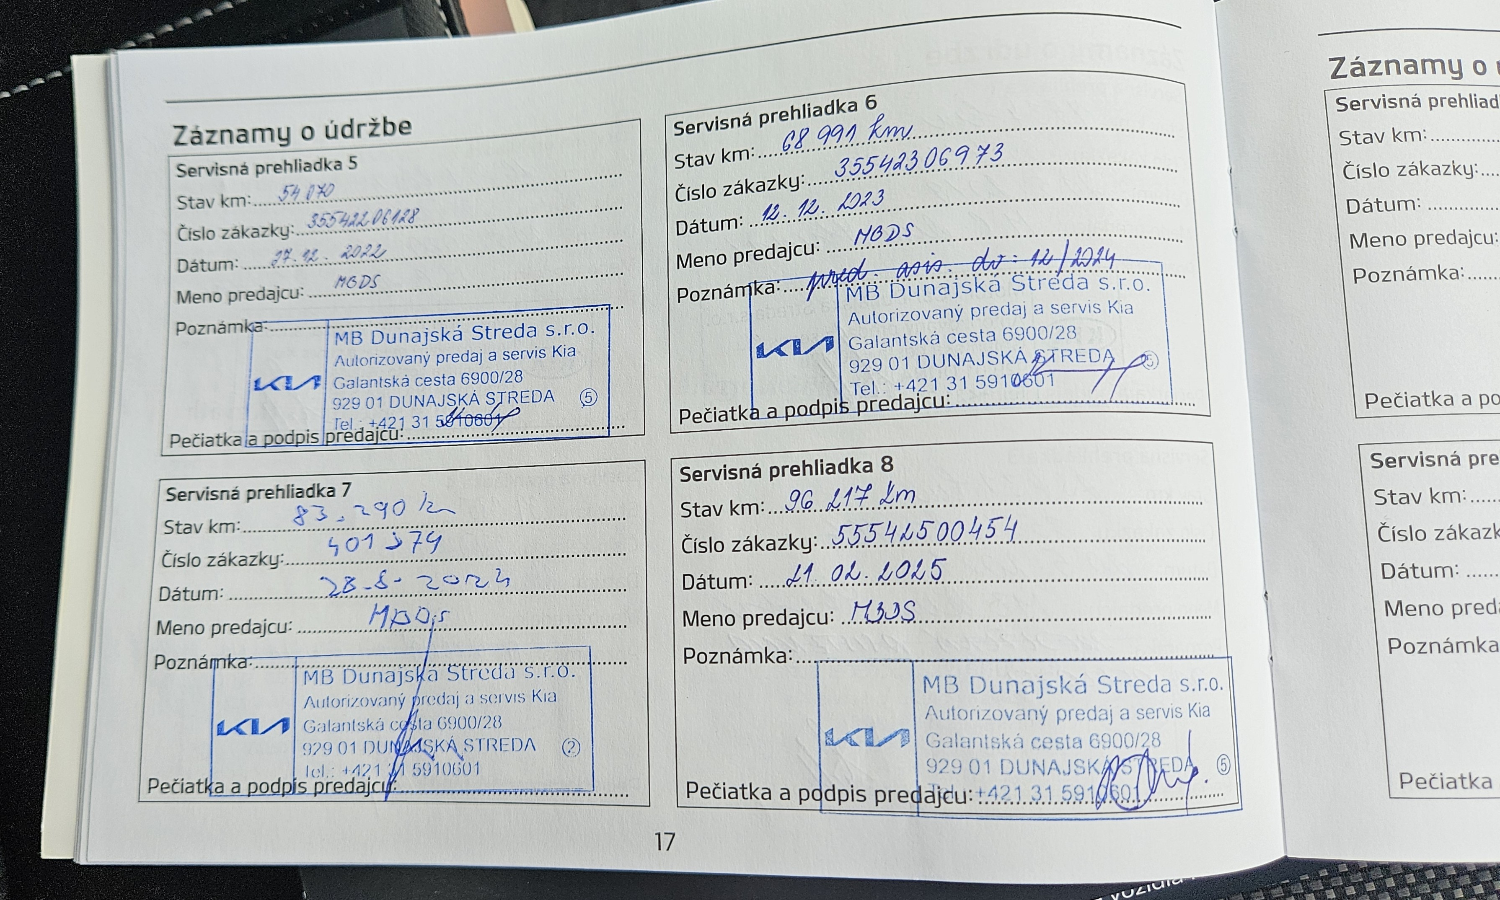 Záznamy o údržbe
Servisná prehliadka 5
Stav km: 54 070
Číslo zákazky: 35542206128
Dátum: 27.12. 2022
Meno predajcu: MBDS
Poznámka:
KIA
MB Dunajská Streda s.r.o.
Autorizovaný predaj a servis Kia
Galantská cesta 6900/28
929 01 DUNAJSKÁ STREDA 5
Tel.: +421 31 5910601
Pečiatka a podpis predajcu:
Servisná prehliadka 6
Stav km: 68 991 km
Číslo zákazky: 35542306973
Dátum: 12. 12. 2023
Meno predajcu: MBDS
Poznámka: pred. asis. do: 12/2024
KIA
MB Dunajská Streda s.r.o.
Autorizovaný predaj a servis Kia
Galantská cesta 6900/28
929 01 DUNAJSKÁ STREDA 5
Tel.: +421 31 5910601
Pečiatka a podpis predajcu:
Servisná prehliadka 7
Stav km: 83.290 km
Číslo zákazky:
Dátum: 28.8.2024
Meno predajcu:
Poznámka:
KIA
MB Dunajská Streda s.r.o.
Autorizovaný predaj a servis Kia
Galantská cesta 6900/28
929 01 DUNAJSKÁ STREDA 2
Tel.: +421 31 5910601
Pečiatka a podpis predajcu:
Servisná prehliadka 8
Stav km: 96 217 km
Číslo zákazky: 55542500454
Dátum: 21. 02. 2025
Meno predajcu: MBDS
Poznámka:
KIA
MB Dunajská Streda s.r.o.
Autorizovaný predaj a servis Kia
Galantská cesta 6900/28
929 01 DUNAJSKÁ STREDA 5
Tel.: +421 31 5910601
Pečiatka a podpis predajcu:
17
Záznamy o
Servisná prehliad
Stav km:
Číslo zákazky:
Dátum:
Meno predajcu:
Poznámka:
Pečiatka a po
Servisná pre
Stav km:
Číslo zákazk
Dátum:
Meno pred
Poznámka
Pečiatka
vozidla